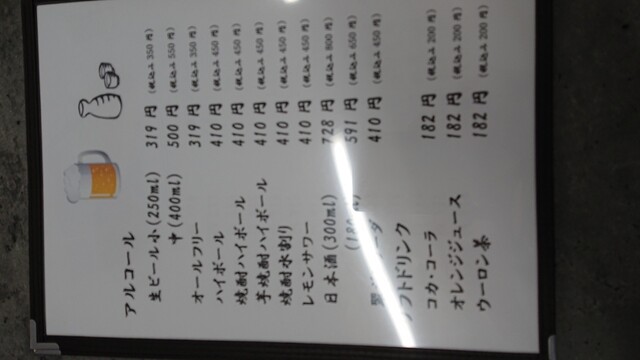 アルコール
生ビール小(250ml) 319円 (税込み350円)
中(400ml) 500円 (税込み550円)
オールフリー 319円 (税込み350円)
ハイボール 410円 (税込み450円)
焼酎ハイボール 410円 (税込み450円)
芋焼酎ハイボール 410円 (税込み450円)
焼酎水割り 410円 (税込み450円)
レモンサワー 410円 (税込み450円)
日本酒(300ml) 728円 (税込み800円)
591円 (税込み650円)
410円 (税込み450円)
ソフトドリンク
コカ・コーラ 182円 (税込み200円)
オレンジジュース 182円 (税込み200円)
ウーロン茶 182円 (税込み200円)